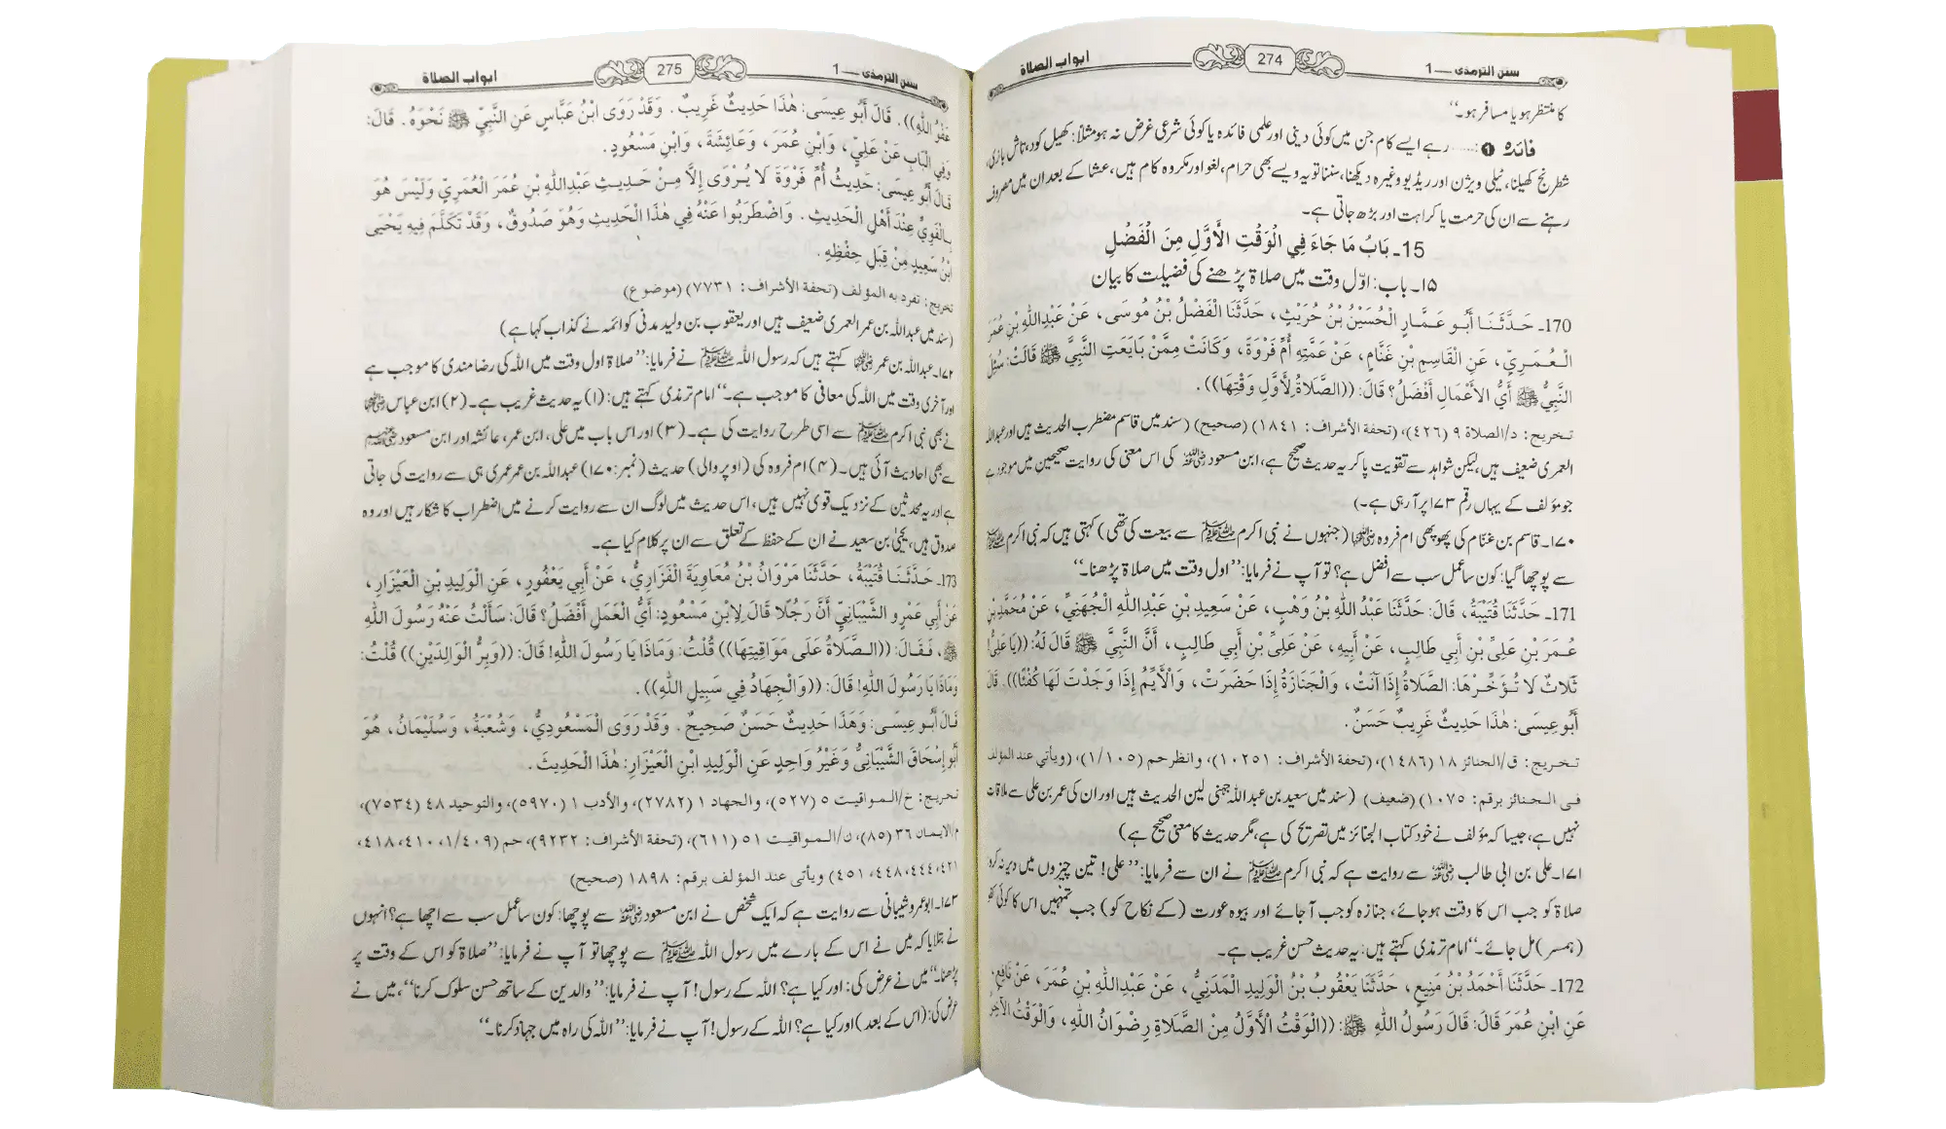 سنن الترمذی — 1
274
ابواب الصلاة
کا منتظر ہو یا مسافر ہو۔‘‘
فائدہ ❶ :...... رہے ایسے کام جن میں کوئی دینی اور علمی فائدہ یا کوئی شرعی غرض نہ ہو مثلاً: کھیل کود، تاش بازی،
شطرنج کھیلنا، ٹیلی ویژن اور ریڈیو وغیرہ دیکھنا، سننا تو یہ ویسے بھی حرام، لغو اور مکروہ کام ہیں، عشا کے بعد ان میں مصروف
رہنے سے ان کی حرمت یا کراہت اور بڑھ جاتی ہے۔
15ـ بَابُ مَا جَاءَ فِي الْوَقْتِ الْأَوَّلِ مِنَ الْفَضْلِ
۱۵۔ باب: اوّل وقت میں صلاۃ پڑھنے کی فضیلت کا بیان
170ـ حَدَّثَنَا أَبُو عَمَّارٍ الْحُسَيْنُ بْنُ حُرَيْثٍ، حَدَّثَنَا الْفَضْلُ بْنُ مُوسَى، عَنْ عَبْدِاللّٰهِ بْنِ عُمَرَ
الْعُمَرِيِّ، عَنِ الْقَاسِمِ بْنِ غَنَّامٍ، عَنْ عَمَّتِهِ أُمِّ فَرْوَةَ، وَكَانَتْ مِمَّنْ بَايَعَتِ النَّبِيَّ ﷺ قَالَتْ: سُئِلَ
النَّبِيُّ ﷺ أَيُّ الأَعْمَالِ أَفْضَلُ؟ قَالَ: ((الصَّلاَةُ لِأَوَّلِ وَقْتِهَا)).
تخريج: د/الصلاة ۹ (۴۲۶)، (تحفة الأشراف: ۱۸۴۱) (صحیح) (سند میں قاسم مضطرب الحدیث ہیں اور عبداللہ
العمری ضعیف ہیں، لیکن شواہد سے تقویت پا کر یہ حدیث صحیح ہے، ابن مسعود رضی اللہ عنہ کی اس معنی کی روایت صحیحین میں موجود ہے
جو مؤلف کے یہاں رقم ۱۷۳ پر آرہی ہے۔)
۱۷۰۔ قاسم بن غنّام کی پھوپھی ام فروہ رضی اللہ عنہا (جنہوں نے نبی اکرم ﷺ سے بیعت کی تھی) کہتی ہیں کہ نبی اکرم ﷺ
سے پوچھا گیا: کون سا عمل سب سے افضل ہے؟ تو آپ نے فرمایا: ’’اول وقت میں صلاۃ پڑھنا۔‘‘
171ـ حَدَّثَنَا قُتَيْبَةُ، قَالَ: حَدَّثَنَا عَبْدُ اللّٰهِ بْنُ وَهْبٍ، عَنْ سَعِيدِ بْنِ عَبْدِاللّٰهِ الْجُهَنِيِّ، عَنْ مُحَمَّدِ بْنِ
عُمَرَ بْنِ عَلِيِّ بْنِ أَبِي طَالِبٍ، عَنْ أَبِيهِ، عَنْ عَلِيِّ بْنِ أَبِي طَالِبٍ، أَنَّ النَّبِيَّ ﷺ قَالَ لَهُ: ((يَا عَلِيُّ!
ثَلَاثٌ لَا تُؤَخِّرْهَا: الصَّلَاةُ إِذَا آنَتْ، وَالْجَنَازَةُ إِذَا حَضَرَتْ، وَالْأَيِّمُ إِذَا وَجَدْتَ لَهَا كُفْئًا)). قَالَ
أَبُو عِيسَى: هٰذَا حَدِيثٌ غَرِيبٌ حَسَنٌ.
تخريج: ق/الجنائز ۱۸ (۱۴۸۶)، (تحفة الأشراف: ۱۰۲۵۱)، وانظر حم (۱/۱۰۵)، (ويأتي عند المؤلف
فى الجنائز برقم: ۱۰۷۵) (ضعیف) (سند میں سعید بن عبداللہ جہنی لین الحدیث ہیں اور ان کی عمر بن علی سے ملاقات
نہیں ہے، جیسا کہ مؤلف نے خود کتاب الجنائز میں تصریح کی ہے، مگر حدیث کا معنی صحیح ہے)
۱۷۱۔ علی بن ابی طالب رضی اللہ عنہ سے روایت ہے کہ نبی اکرم ﷺ نے ان سے فرمایا: ’’علی! تین چیزوں میں دیر نہ کرو
صلاۃ کو جب اس کا وقت ہوجائے، جنازہ کو جب آ جائے اور بیوہ عورت (کے نکاح کو) جب تمہیں اس کا کوئی
(ہمسر) مل جائے۔‘‘ امام ترمذی کہتے ہیں: یہ حدیث حسن غریب ہے۔
172ـ حَدَّثَنَا أَحْمَدُ بْنُ مَنِيعٍ، حَدَّثَنَا يَعْقُوبُ بْنُ الْوَلِيدِ الْمَدَنِيُّ، عَنْ عَبْدِاللّٰهِ بْنِ عُمَرَ، عَنْ نَافِعٍ،
عَنِ ابْنِ عُمَرَ قَالَ: قَالَ رَسُولُ اللّٰهِ ﷺ: ((الْوَقْتُ الْأَوَّلُ مِنَ الصَّلَاةِ رِضْوَانُ اللّٰهِ، وَالْوَقْتُ الْآخِرُ
سنن الترمذی — 1
275
ابواب الصلاة
عَفْوُ اللّٰهِ)). قَالَ أَبُو عِيسَى: هٰذَا حَدِيثٌ غَرِيبٌ. وَقَدْ رَوَى ابْنُ عَبَّاسٍ عَنِ النَّبِيِّ ﷺ نَحْوَهُ. قَالَ:
وَفِي الْبَابِ عَنْ عَلِيٍّ، وَابْنِ عُمَرَ، وَعَائِشَةَ، وَابْنِ مَسْعُودٍ.
قَالَ أَبُو عِيسَى: حَدِيثُ أُمِّ فَرْوَةَ لَا يُرْوَى إِلَّا مِنْ حَدِيثِ عَبْدِاللّٰهِ بْنِ عُمَرَ الْعُمَرِيِّ وَلَيْسَ هُوَ
بِالْقَوِيِّ عِنْدَ أَهْلِ الْحَدِيثِ. وَاضْطَرَبُوا عَنْهُ فِي هٰذَا الْحَدِيثِ وَهُوَ صَدُوقٌ، وَقَدْ تَكَلَّمَ فِيهِ يَحْيَى
ابْنُ سَعِيدٍ مِنْ قِبَلِ حِفْظِهِ.
تخريج: تفرد به المؤلف (تحفة الأشراف: ۷۷۳۱) (موضوع)
(سند میں عبداللہ بن عمر العمری ضعیف ہیں اور یعقوب بن ولید مدنی کو ائمہ نے کذاب کہا ہے)
۱۷۲۔ عبداللہ بن عمر رضی اللہ عنہما کہتے ہیں کہ رسول اللہ ﷺ نے فرمایا: ’’صلاۃ اول وقت میں اللہ کی رضا مندی کا موجب ہے
اور آخری وقت میں اللہ کی معافی کا موجب ہے۔‘‘ امام ترمذی کہتے ہیں: (۱) یہ حدیث غریب ہے۔ (۲) ابن عباس رضی اللہ عنہما
نے بھی نبی اکرم ﷺ سے اسی طرح روایت کی ہے۔ (۳) اور اس باب میں علی، ابن عمر، عائشہ اور ابن مسعود رضی اللہ عنہم
سے بھی احادیث آئی ہیں۔ (۴) ام فروہ کی (اوپر والی) حدیث (نمبر: ۱۷۰) عبداللہ بن عمر عمری ہی سے روایت کی جاتی
ہے اور یہ محدثین کے نزدیک قوی نہیں ہیں، اس حدیث میں لوگ ان سے روایت کرنے میں اضطراب کا شکار ہیں اور وہ
صدوق ہیں، یحییٰ بن سعید نے ان کے حفظ کے تعلق سے ان پر کلام کیا ہے۔
173ـ حَدَّثَنَا قُتَيْبَةُ، حَدَّثَنَا مَرْوَانُ بْنُ مُعَاوِيَةَ الْفَزَارِيُّ، عَنْ أَبِي يَعْفُورٍ، عَنِ الْوَلِيدِ بْنِ الْعَيْزَارِ،
عَنْ أَبِي عَمْرٍو الشَّيْبَانِيِّ أَنَّ رَجُلًا قَالَ لِابْنِ مَسْعُودٍ: أَيُّ الْعَمَلِ أَفْضَلُ؟ قَالَ: سَأَلْتُ عَنْهُ رَسُولَ اللّٰهِ
ﷺ، فَقَالَ: ((الصَّلاَةُ عَلَى مَوَاقِيتِهَا)) قُلْتُ: وَمَاذَا يَا رَسُولَ اللّٰهِ! قَالَ: ((وَبِرُّ الْوَالِدَيْنِ)) قُلْتُ:
وَمَاذَا يَا رَسُولَ اللّٰهِ! قَالَ: ((وَالْجِهَادُ فِي سَبِيلِ اللّٰهِ)).
قَالَ أَبُو عِيسَى: وَهَذَا حَدِيثٌ حَسَنٌ صَحِيحٌ. وَقَدْ رَوَى الْمَسْعُودِيُّ، وَشُعْبَةُ، وَسُلَيْمَانُ، هُوَ
أَبُو إِسْحَاقَ الشَّيْبَانِيُّ وَغَيْرُ وَاحِدٍ عَنِ الْوَلِيدِ ابْنِ الْعَيْزَارِ: هٰذَا الْحَدِيثَ.
تخريج: خ/المواقيت ۵ (۵۲۷)، والجهاد ۱ (۲۷۸۲)، والأدب ۱ (۵۹۷۰)، والتوحيد ۴۸ (۷۵۳۴)،
م/الايمان ۳۶ (۸۵)، ن/المواقيت ۵۱ (۶۱۱)، (تحفة الأشراف: ۹۲۳۲)، حم (۱/۴۰۹، ۴۱۰، ۴۱۸،
۴۲۱، ۴۴۴، ۴۴۸، ۴۵۱) ويأتى عند المؤلف برقم: ۱۸۹۸ (صحيح)
۱۷۳۔ ابو عمرو شیبانی سے روایت ہے کہ ایک شخص نے ابن مسعود رضی اللہ عنہ سے پوچھا: کون سا عمل سب سے اچھا ہے؟ انہوں
نے بتلایا کہ میں نے اس کے بارے میں رسول اللہ ﷺ سے پوچھا تو آپ نے فرمایا: ’’صلاۃ کو اس کے وقت پر
پڑھنا۔‘‘ میں نے عرض کی: اور کیا ہے؟ اللہ کے رسول! آپ نے فرمایا: ’’والدین کے ساتھ حسن سلوک کرنا‘‘، میں نے
عرض کی: (اس کے بعد) اور کیا ہے؟ اللہ کے رسول! آپ نے فرمایا: ’’اللہ کی راہ میں جہاد کرنا۔‘‘